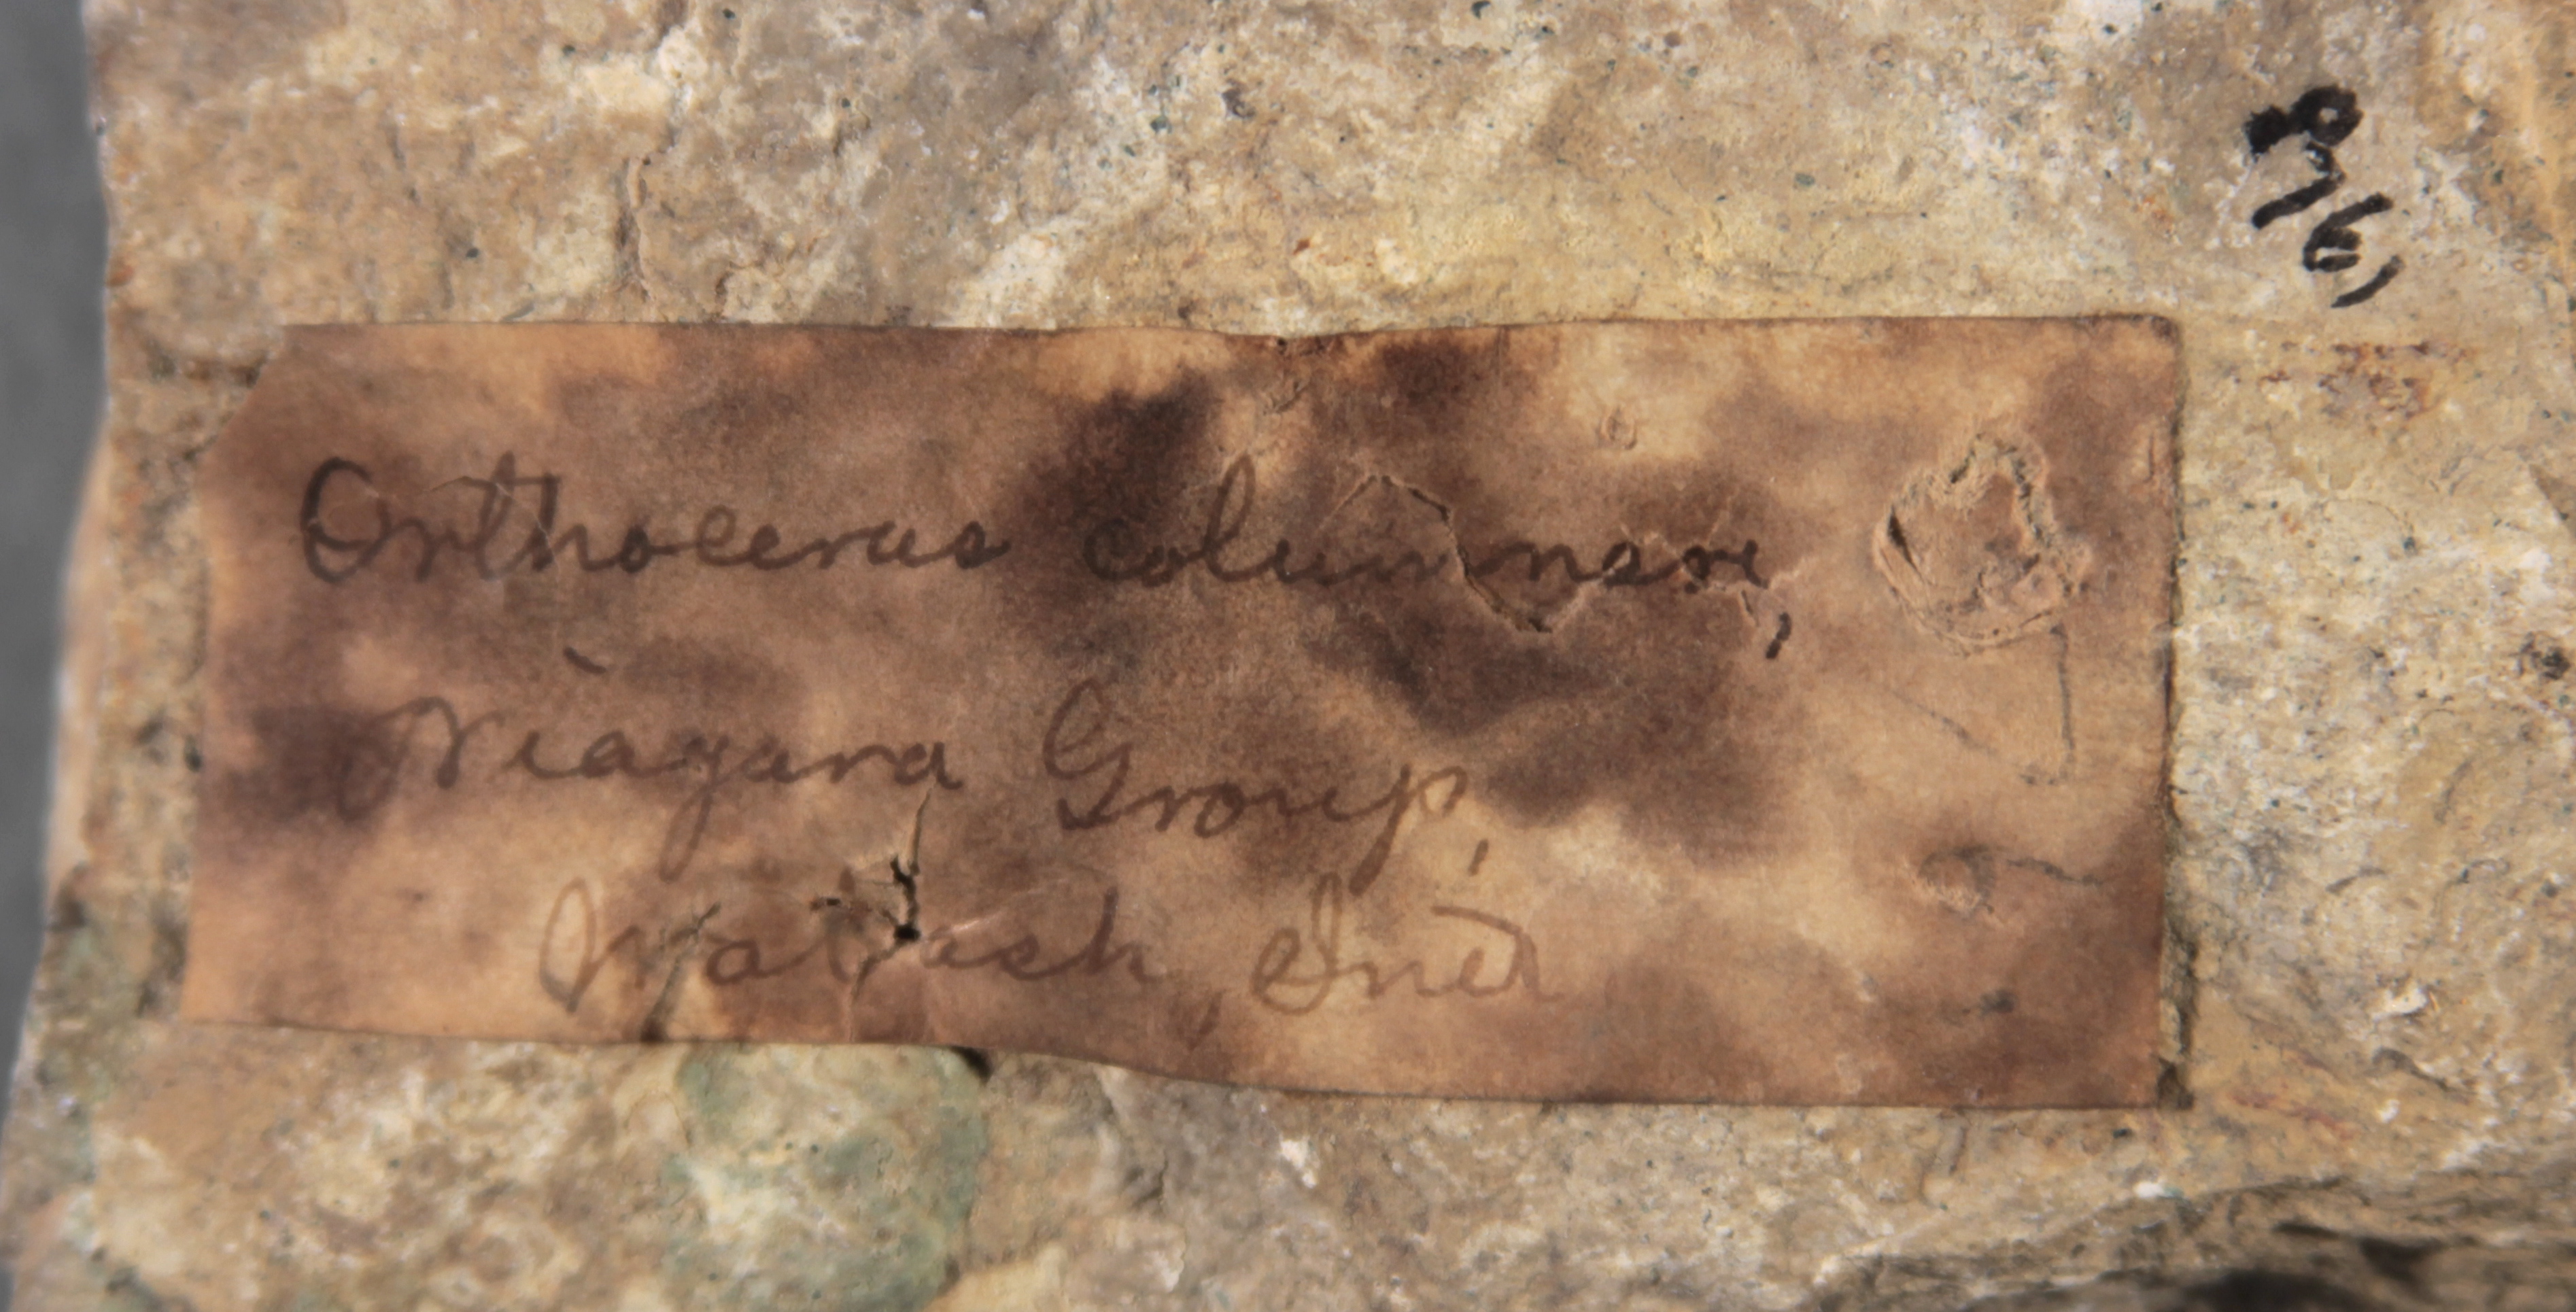 Orthoceras columnare,
Niagara Group,
Wabash, Ind